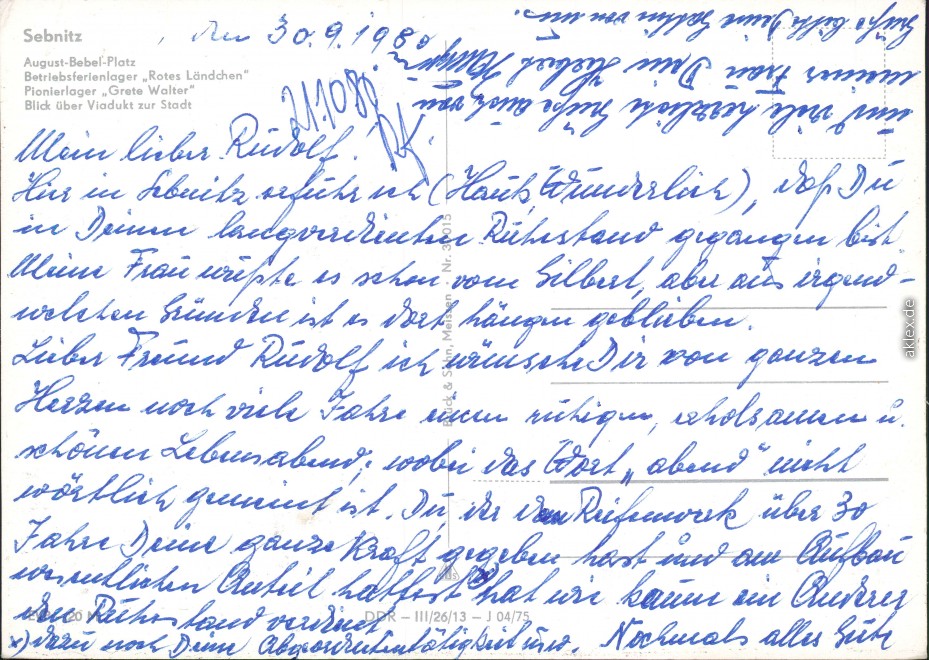 Sebnitz
August-Bebel-Platz
Betriebsferienlager „Rotes Ländchen"
Pionierlager „Grete Walter"
Blick über Viadukt zur Stadt
, den 30.9.1980
21.10.80
Mein lieber Rudolf!
Hier in Sebnitz erfuhr ich (Haus Wunderlich), daß Du
in Deinen langverdienten Ruhestand gegangen bist.
Meine Frau wußte es schon vom Gilbert, aber aus irgend-
welchen Gründen ist es dort hängen geblieben.
Lieber Freund Rudolf ich wünsche Dir von ganzem
Herzen noch viele Jahre einen ruhigen, erholsamen u.
schönen Lebensabend, wobei das Wort „abend" nicht
wörtlich gemeint ist. Du, der dem Reifenwerk über 30
Jahre Deine ganze Kraft gegeben hast und am Aufbau
wesentlichen Anteil hattest x) hat wie kaum ein Anderer
den Ruhestand verdient
x) dazu noch Deine Abgeordnetentätigkeit usw. Nochmals alles Gute
und viele herzliche Grüße auch von
meiner Frau Dein Herbert
Grüße bitte Deine Gattin von uns.
Brück & Sohn, Meissen Nr. 30015
DDR – III/26/13 – J 04/75
aklex.de